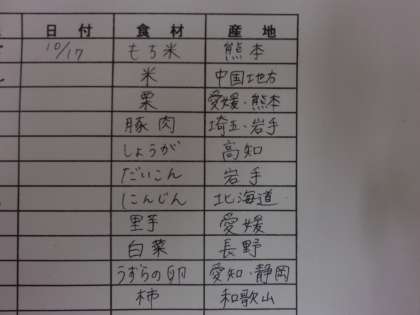 日付 食材 産地
10/17 もち米 熊本
米 中国地方
栗 愛媛・熊本
豚肉 埼玉・岩手
しょうが 高知
だいこん 岩手
にんじん 北海道
里芋 愛媛
白菜 長野
うずらの卵 愛知・静岡
柿 和歌山